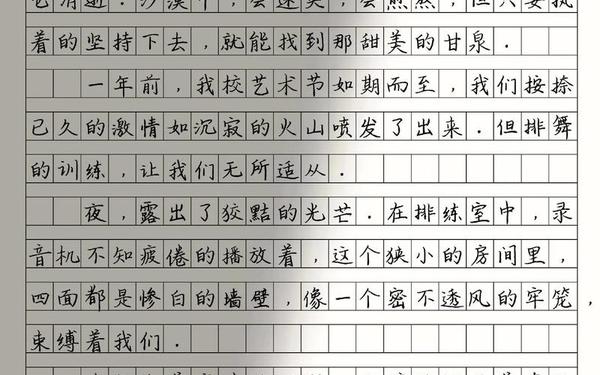 着的坚持下去，就能找到那甜美的甘泉．
一年前，我校艺术节如期而至，我们按捺
已久的激情如沉寂的火山喷发了出来．但排舞
的训练，让我们无所适从．
夜，露出了狡黠的光芒．在排练室中，录
音机不知疲倦的播放着，这个狭小的房间里，
四面都是惨白的墙壁，像一个密不透风的牢笼，
束缚着我们．